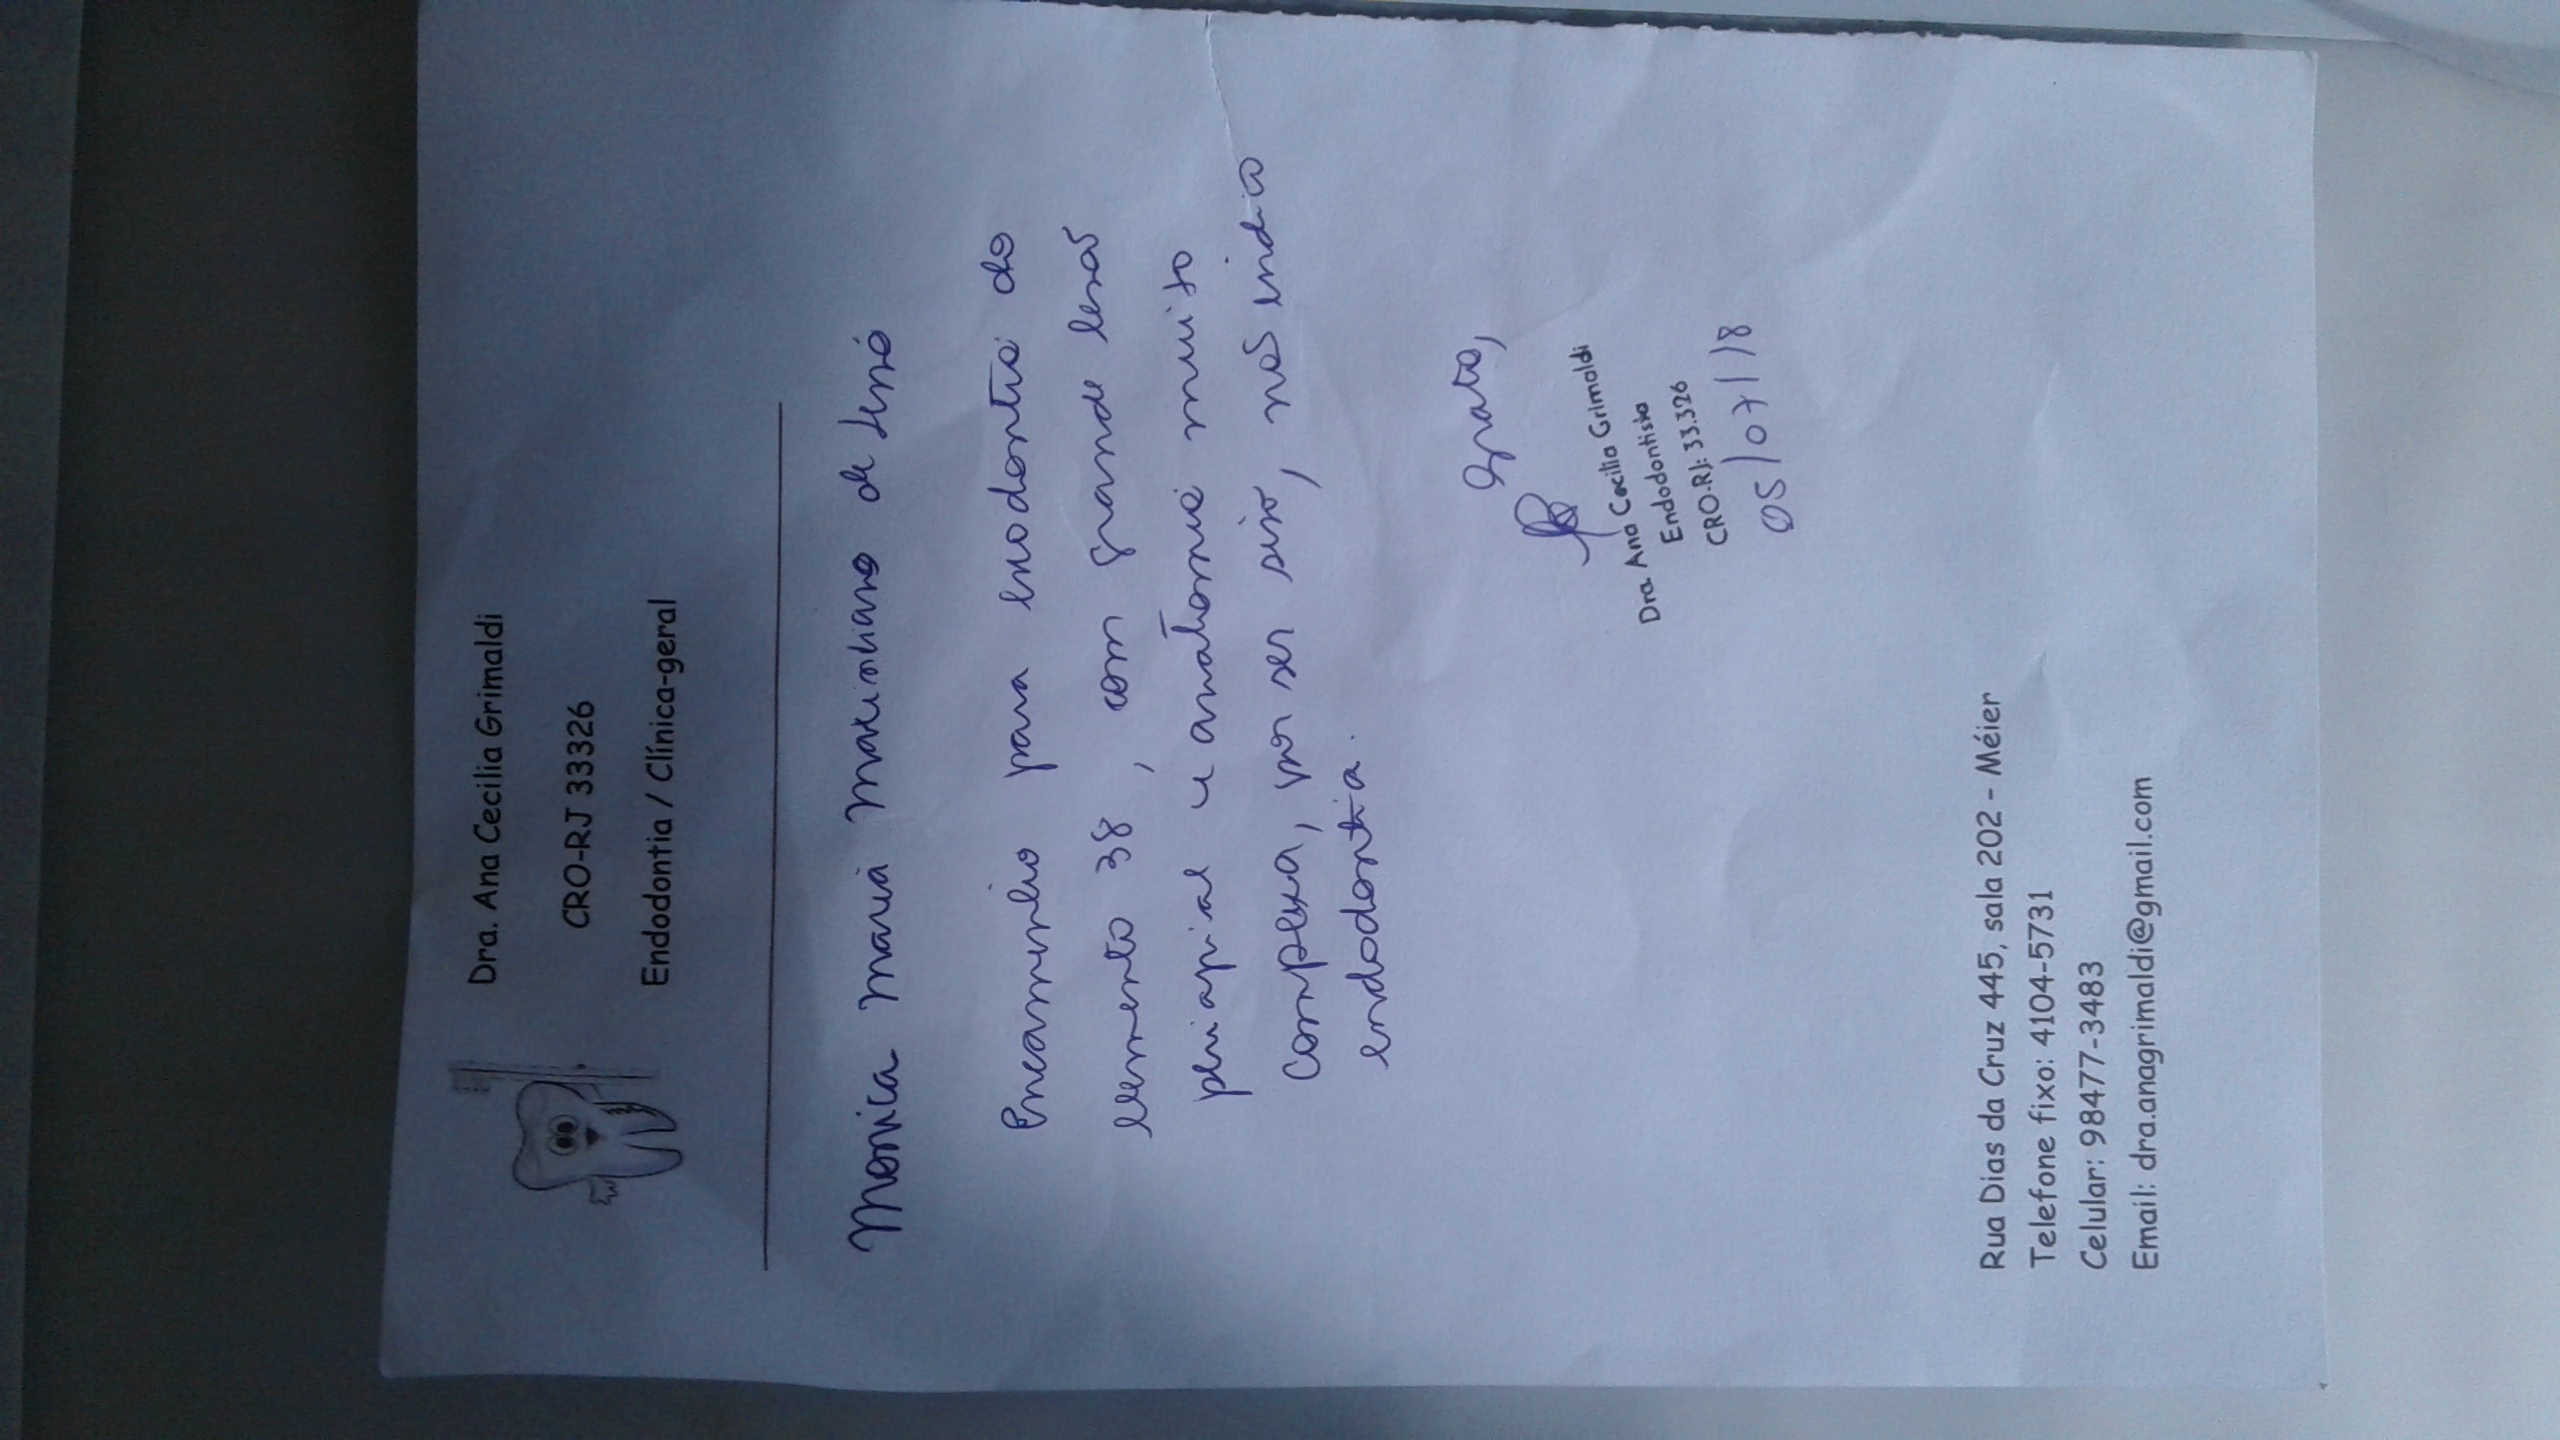 Dra. Ana Cecilia Grimaldi
CRO-RJ 33326
Endodontia / Clínica-geral
Monica Maria Maximiano de Lima
Encaminho para endodontia do
elemento 38, com grande lesão
periapical e anatomia muito
complexa, por ser siso, nos indico
endodontia.
Grata,
Dra. Ana Cecilia Grimaldi
Endodontista
CRO-RJ: 33.326
05/07/18
Rua Dias da Cruz 445, sala 202 - Méier
Telefone fixo: 4104-5731
Celular: 98477-3483
Email: dra.anagrimaldi@gmail.com